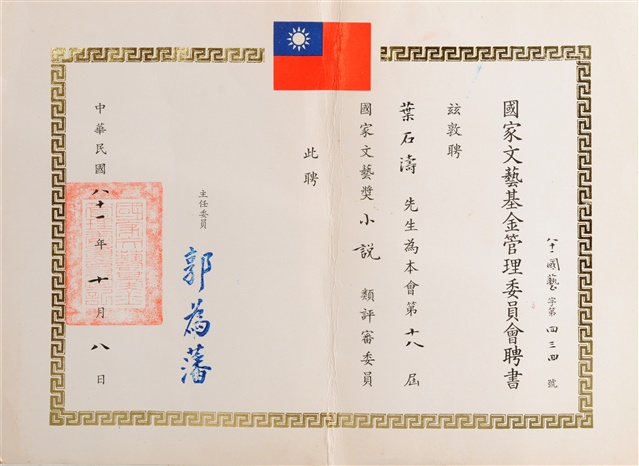 國家文藝基金管理委員會聘書
八十一國藝字第四三四號
茲敦聘
葉石濤先生為本會第十八屆
國家文藝獎小說類評審委員
此聘
主任委員
郭為藩
中華民國八十一年十月八日